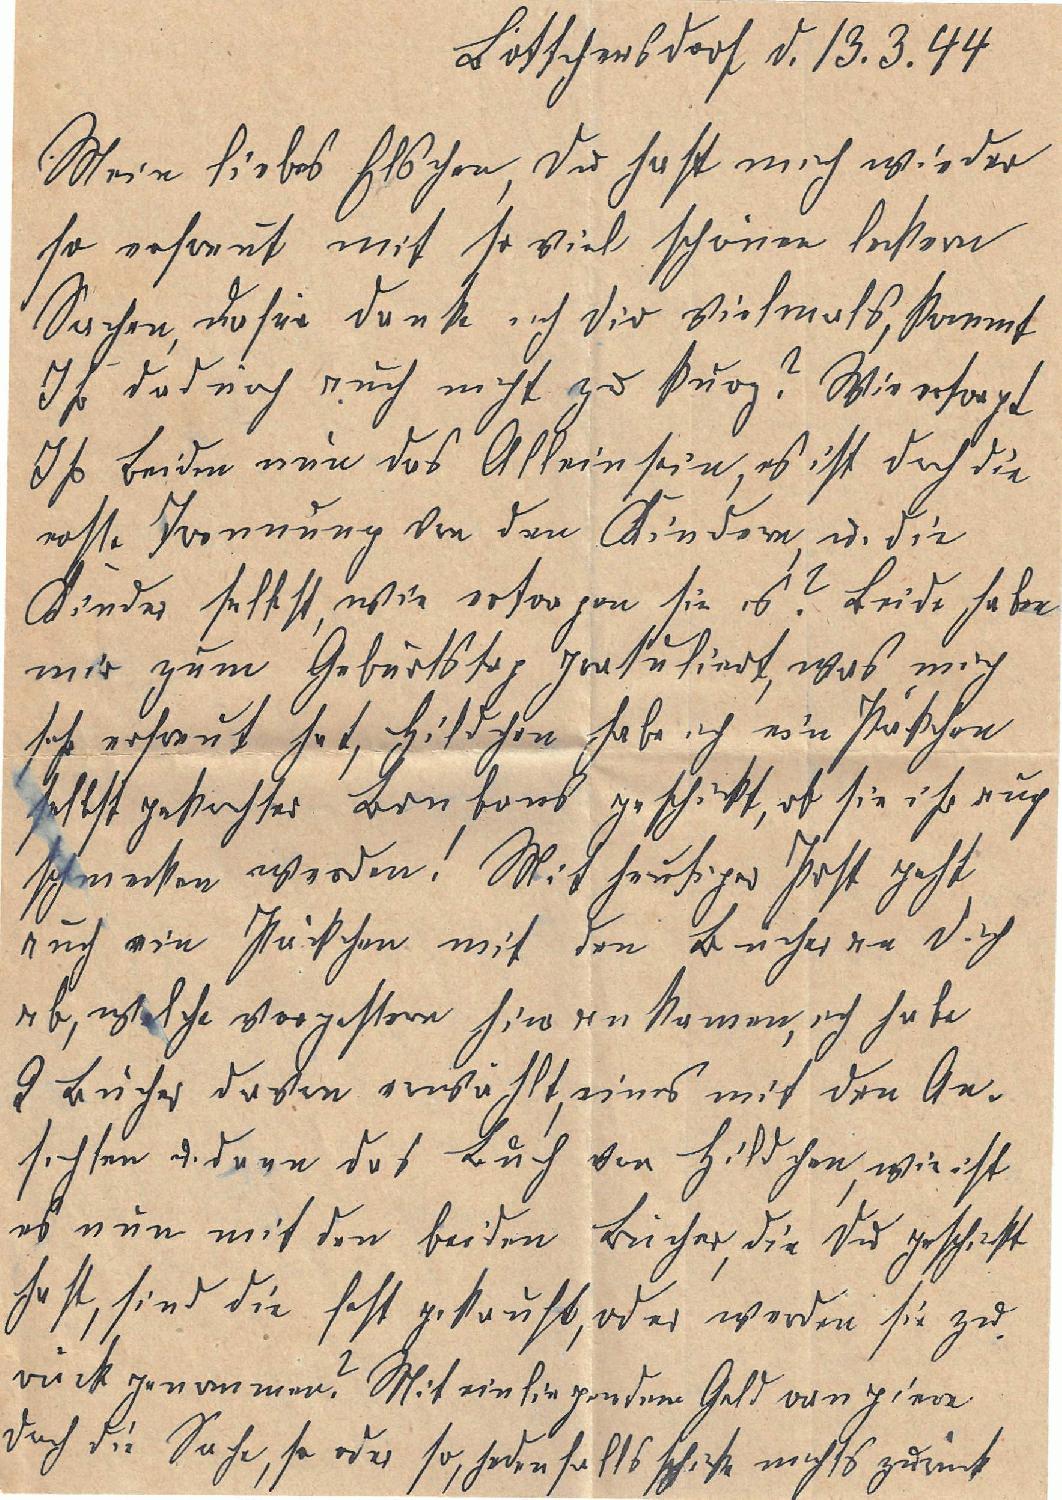 Böttchersdorf d. 13.3.44
Mein liebes Elschen, Du hast mich wieder
so erfreut mit so viel schönen leckern
Sachen, dafür danke ich Dir vielmals, kommt
Ihr dadurch auch nicht zu kurz? Wie ertragt
Ihr beiden nun das Alleinsein, es ist doch die
erste Trennung von den Kindern, u. die
Kinder selbst, wie ertragen sie es? Beide haben
mir zum Geburtstag gratuliert, was mich
sehr erfreut hat, Hildchen habe ich ein Päckchen
selbst gekochter Bonbons geschickt, ob sie ihr auch
schmecken werden! Mit heutiger Post geht
auch ein Päckchen mit den Bücher an Dich
ab, welche vorgestern hier ankamen, ich habe
2 Bücher davon erwählt, eines mit den An-
sichten u. dann das Buch von Hildchen, wie ist
es nun mit den beiden Bücher, die Du geschickt
hast, sind die fest gekauft, oder werden sie zu-
rück genommen? Mit einliegendem Geld rangiere
doch die Sache, so oder so, jedenfalls schicke nichts zurück